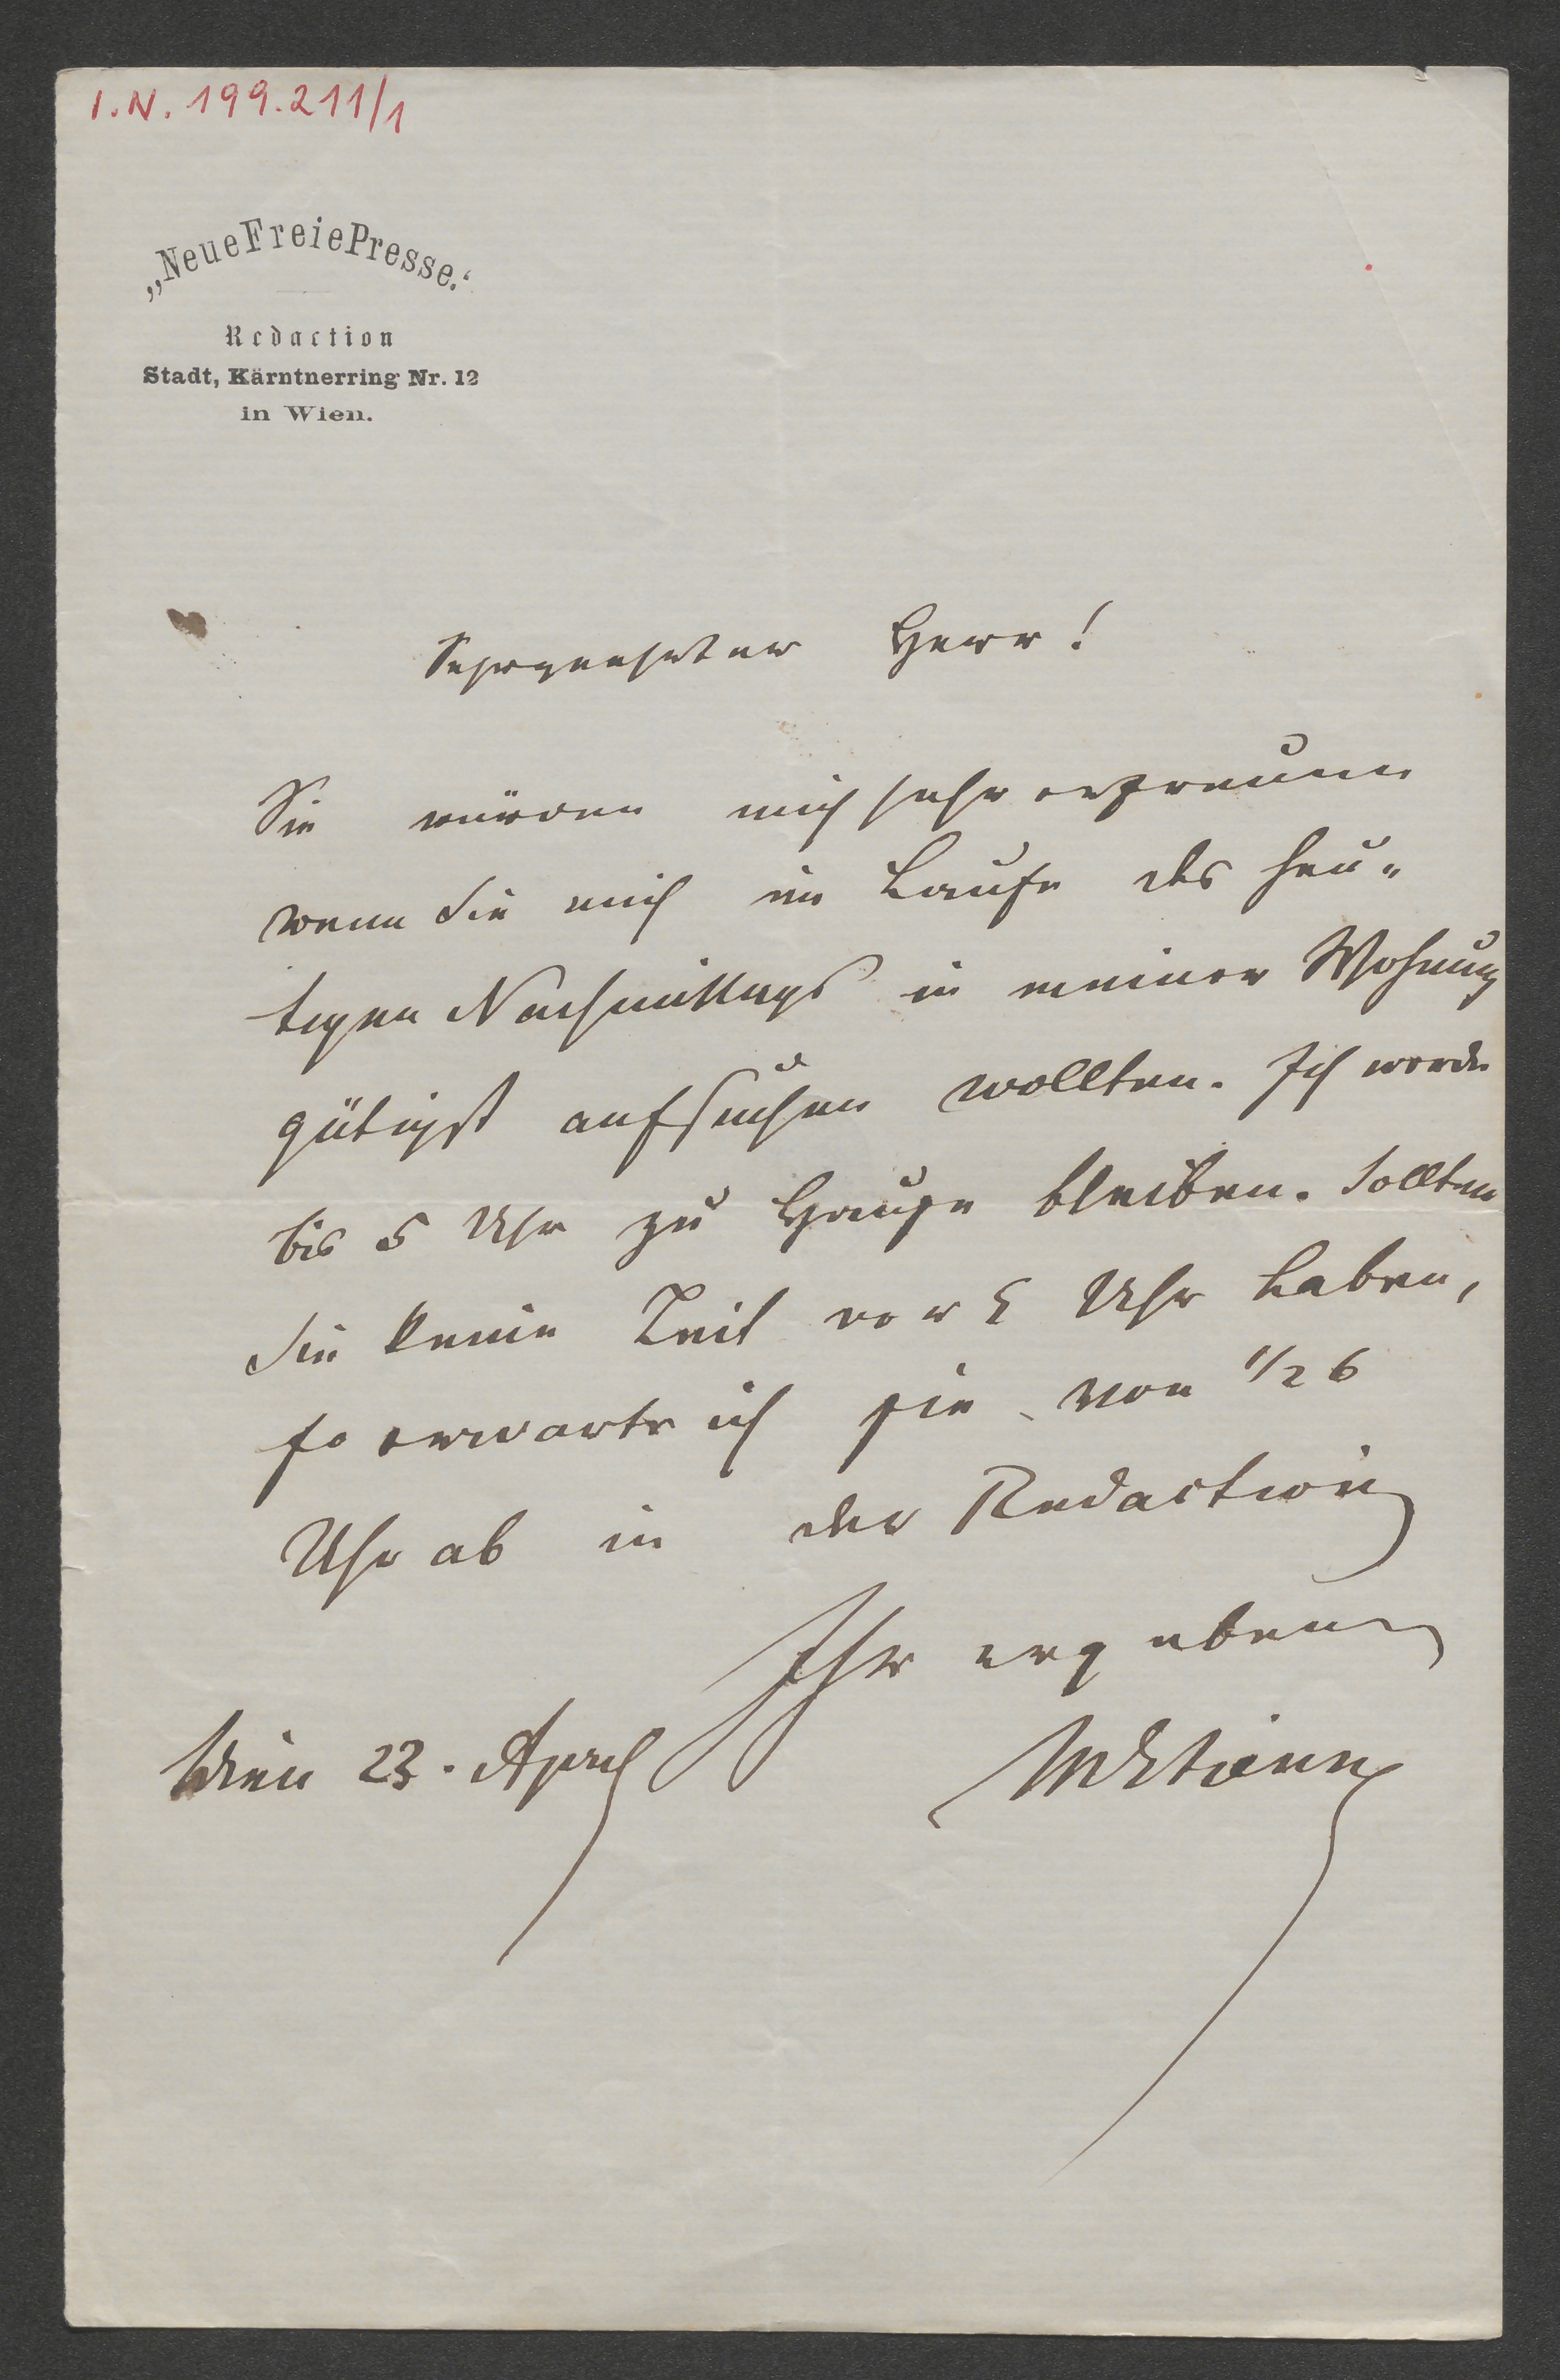 I.N. 199.211/1
„Neue Freie Presse.“
Redaction
Stadt, Kärntnerring Nr. 12
in Wien.
Sehrgeehrter Herr!
Sie würden mich sehr erfreuen
wenn Sie mich im Laufe des heu-
tigen Nachmittags in meiner Wohnung
gütigst aufsuchen wollten. Ich werde
bis 5 Uhr zu Hause bleiben. Sollten
Sie keine Zeit vor 5 Uhr haben,
so erwarte ich Sie von 1/2 6
Uhr ab in der Redaction
Ihr ergebener
Wien 23. April